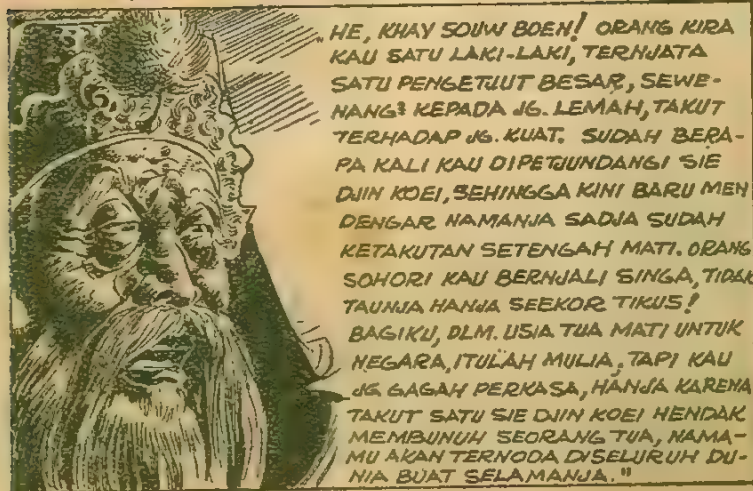 "HE, KHAY SOUW BOEN! ORANG KIRA
KAU SATU LAKI-LAKI, TERNJATA
SATU PENGETJUT BESAR, SEWE-
NANG² KEPADA JG. LEMAH, TAKUT
TERHADAP JG. KUAT. SUDAH BERA-
PA KALI KAU DIPETJUNDANGI SIE
DJIN KOEI, SEHINGGA KINI BARU MEN
DENGAR NAMANJA SADJA SUDAH
KETAKUTAN SETENGAH MATI. ORANG
SOHORI KAU BERNJALI SINGA, TIDAK
TAUNJA HANJA SEEKOR TIKUS!
BAGIKU, DLM. USIA TUA MATI UNTUK
NEGARA, ITULAH MULIA, TAPI KAU
JG GAGAH PERKASA, HANJA KARENA
TAKUT SATU SIE DJIN KOEI HENDAK
MEMBUNUH SEORANG TUA, NAMA-
MU AKAN TERNODA DISELURUH DU-
NIA BUAT SELAMANJA."